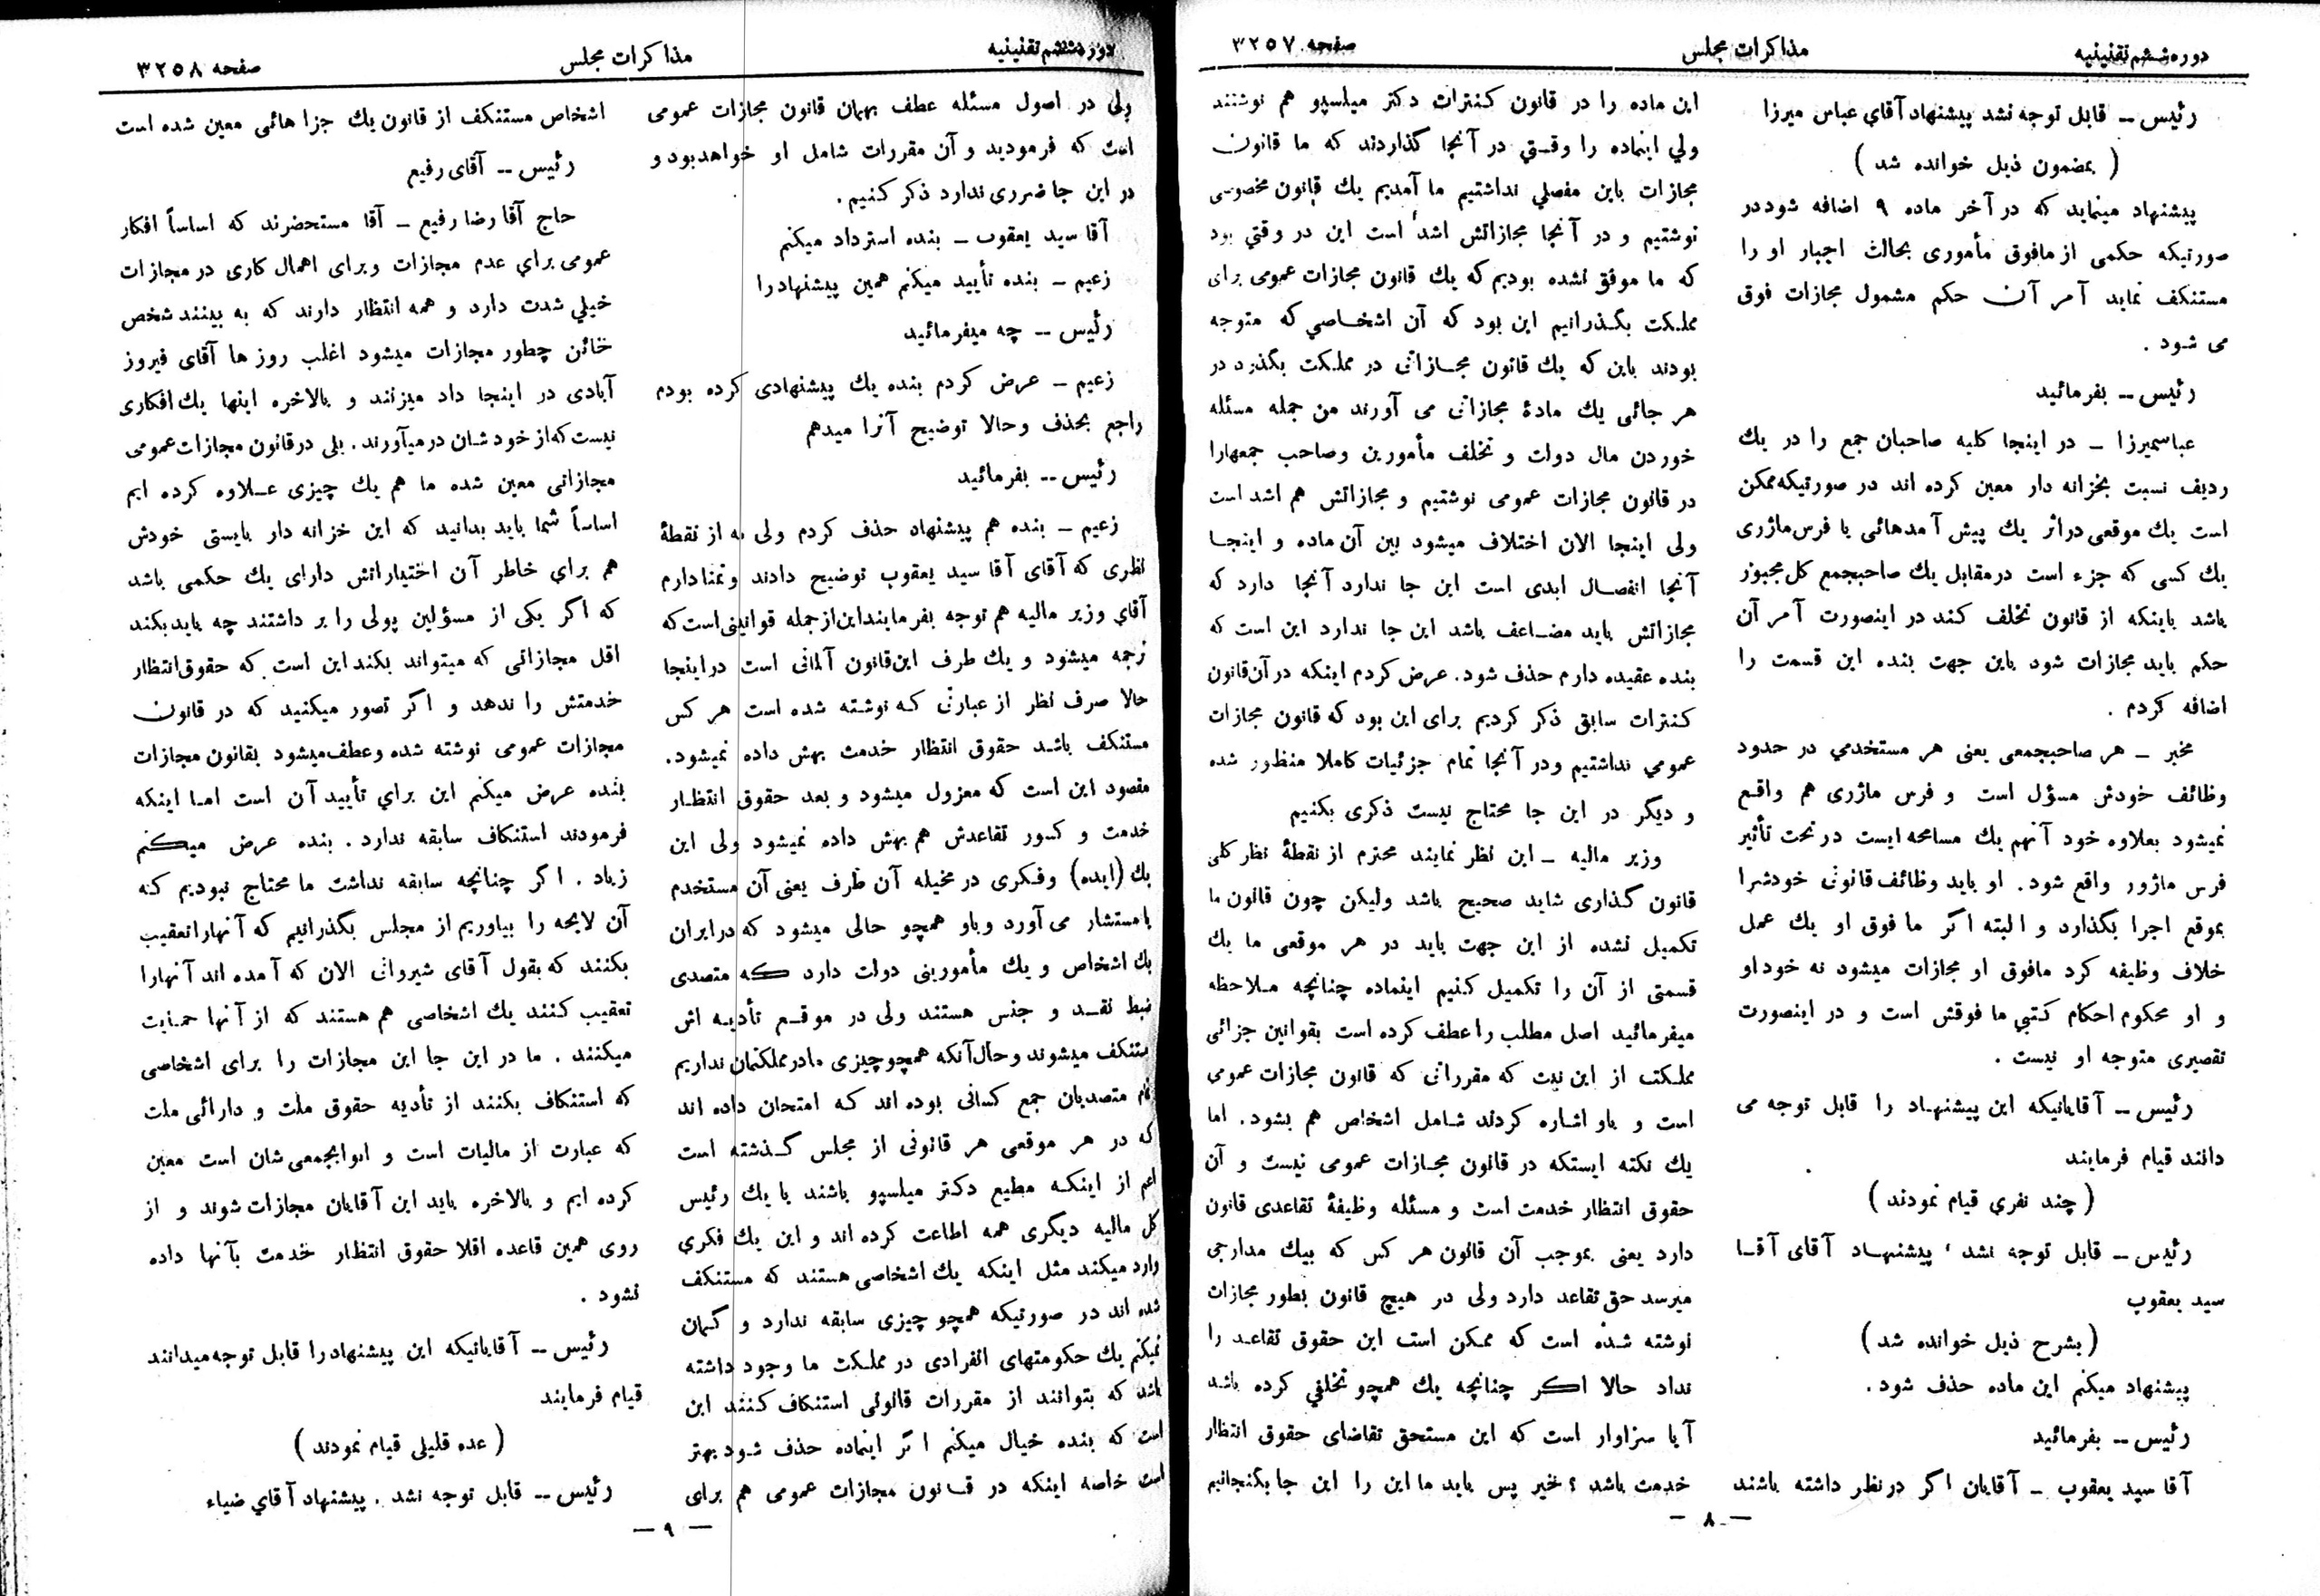 دوره ششم تقنینیه
مذاکرات مجلس
صفحه ۳۲۵۷
رئیس – قابل توجه نشد پیشنهاد آقاي عباس میرزا
( بمضمون ذیل خوانده شد )
پیشنهاد مینماید که در آخر ماده ۹ اضافه شود در
صورتیکه حکمی از مافوق مأموری بحالت اجبار او را
مستنکف نماید آمر آن حکم مشمول مجازات فوق
می شود .
رئیس – بفرمائید
عباسمیرزا – در اینجا کلیه صاحبان جمع را در یك
ردیف نسبت بخزانه دار معین کرده اند در صورتیکه ممکن
است یك موقعی در اثر یك پیش آمدهائی یا فرس ماژری
یك کسی که جزء است در مقابل یك صاحبجمع کل مجبور
باشد باینکه از قانون تخلف کند در اینصورت آمر آن
حکم باید مجازات شود باین جهت بنده این قسمت را
اضافه کردم .
مخبر – هر صاحبجمعی یعنی هر مستخدمي در حدود
وظائف خودش مسؤل است و فرس ماژری هم واقع
نمیشود بعلاوه خود آنهم یك مسامحه ایست در تحت تأثیر
فرس ماژور واقع شود. او باید وظائف قانونی خودشرا
بموقع اجرا بگذارد و البته اگر ما فوق او یك عمل
خلاف وظیفه کرد مافوق او مجازات میشود نه خود او
و او محکوم احکام کتبي ما فوقش است و در اینصورت
تقصیری متوجه او نیست .
رئیس – آقایانیکه این پیشنهاد را قابل توجه می
دانند قیام فرمایند
( چند نفري قیام نمودند )
رئیس – قابل توجه نشد ، پیشنهاد آقای آقا
سید یعقوب
( بشرح ذیل خوانده شد )
پیشنهاد میکنم این ماده حذف شود .
رئیس – بفرمائید
آقا سید یعقوب – آقایان اگر در نظر داشته باشند
این ماده را در قانون کنترات دکتر میلسپو هم نوشتند
ولي اینماده را وقتي در آنجا گذاردند که ما قانون
مجازات باین مفصلي نداشتیم ما آمدیم یك قانون مخصوصی
نوشتیم و در آنجا مجازاتش اشد است این در وقتي بود
که ما موفق نشده بودیم که یك قانون مجازات عمومی برای
مملکت بگذرانیم این بود که آن اشخاصي که متوجه
بودند باین که یك قانون مجازاتی در مملکت بگذرد در
هر جائی یك مادهٔ مجازاتی می آورند من جمله مسئله
خوردن مال دولت و تخلف مأمورین و صاحب جمعهارا
در قانون مجازات عمومی نوشتیم و مجازاتش هم اشد است
ولی اینجا الان اختلاف میشود بین آن ماده و اینجا
آنجا انفصال ابدی است این جا ندارد آنجا دارد که
مجازاتش باید مضاعف باشد این جا ندارد این است که
بنده عقیده دارم حذف شود. عرض کردم اینکه در آن قانون
کنترات سابق ذکر کردیم برای این بود که قانون مجازات
عمومي نداشتیم و در آنجا تمام جزئیات کاملا منظور شده
و دیگر در این جا محتاج نیست ذکری بکنیم
وزیر مالیه – این نظر نماینده محترم از نقطهٔ نظر کلی
قانون گذاری شاید صحیح باشد ولیکن چون قانون ما
تکمیل نشده از این جهت باید در هر موقعی ما یك
قسمتی از آن را تکمیل کنیم اینماده چنانچه ملاحظه
میفرمائید اصل مطلب را عطف کرده است بقوانین جزائی
مملکت از این نیت که مقرراتی که قانون مجازات عمومی
است و باو اشاره کردند شامل اشخاص هم بشود. اما
یك نکته ایستکه در قانون مجازات عمومی نیست و آن
حقوق انتظار خدمت است و مسئله وظیفهٔ تقاعدی قانون
دارد یعنی بموجب آن قانون هر کس که بیك مدارجی
میرسد حق تقاعد دارد ولی در هیچ قانون بطور مجازات
نوشته شده است که ممکن است این حقوق تقاعد را
نداد حالا اگر چنانچه یك همچو تخلفي کرده باشد
آیا سزاوار است که این مستحق تقاضای حقوق انتظار
خدمت باشد ؟ خیر پس باید ما این را این جا بگنجانیم
— ۸ —
دوره ششم تقنینیه
مذاکرات مجلس
صفحه ۳۲۵۸
ولی در اصول مسئله عطف بهمان قانون مجازات عمومی
است که فرمودید و آن مقررات شامل او خواهد بود و
در این جا ضرری ندارد ذکر کنیم .
آقا سید یعقوب – بنده استرداد میکنم
زعیم – بنده تأیید میکنم همین پیشنهاد را
رئیس – چه میفرمائید
زعیم – عرض کردم بنده یك پیشنهادی کرده بودم
راجع بحذف و حالا توضیح آنرا میدهم
رئیس – بفرمائید
زعیم – بنده هم پیشنهاد حذف کردم ولی نه از نقطهٔ
نظری که آقای آقا سید یعقوب توضیح دادند و تمنا دارم
آقاي وزیر مالیه هم توجه بفرمایند این از جمله قوانینی است که
ترجمه میشود و یك طرف این قانون آلمانی است در اینجا
حالا صرف نظر از عبارتی که نوشته شده است هر کس
مستنکف باشد حقوق انتظار خدمت بهش داده نمیشود.
مقصود این است که معزول میشود و بعد حقوق انتظار
خدمت و کسور تقاعدش هم بهش داده نمیشود ولی این
یك (ایده) و فکری در مخیله آن طرف یعنی آن مستخدم
یا مستشار می آورد و باو همچو حالی میشود که در ایران
یك اشخاص و یك مأمورینی دولت دارد که متصدی
ضبط نقد و جنس هستند ولی در موقع تأدیه اش
مستنکف میشوند و حال آنکه همچو چیزی ما در مملکتمان نداریم
تمام متصدیان جمع کسانی بوده اند که امتحان داده اند
که در هر موقعی هر قانونی از مجلس گذشته است
اعم از اینکه مطیع دکتر میلسپو باشند یا یك رئیس
کل مالیه دیگری همه اطاعت کرده اند و این یك فکري
وارد میکند مثل اینکه یك اشخاصی هستند که مستنکف
شده اند در صورتیکه همچو چیزی سابقه ندارد و گمان
نمیکنم یك حکومتهای انفرادی در مملکت ما وجود داشته
باشد که بتوانند از مقررات قانونی استنکاف کنند این
است که بنده خیال میکنم اگر اینماده حذف شود بهتر
است خاصه اینکه در قانون مجازات عمومی هم برای
اشخاص مستنکف از قانون یك جزا هائی معین شده است
رئیس – آقای رفیع
حاج آقا رضا رفیع – آقا مستحضرند که اساساً افکار
عمومی براي عدم مجازات و برای اهمال کاری در مجازات
خیلي شدت دارد و همه انتظار دارند که به بینند شخص
خائن چطور مجازات میشود اغلب روز ها آقای فیروز
آبادی در اینجا داد میزنند و بالاخره اینها یك افکاری
نیست که از خودشان در میآورند . بلی در قانون مجازات عمومی
مجازاتی معین شده ما هم یك چیزی علاوه کرده ایم
اساساً شما باید بدانید که این خزانه دار بایستی خودش
هم براي خاطر آن اختیاراتش دارای یك حکمی باشد
که اگر یکی از مسؤلین پولی را بر داشتند چه باید بکند
اقل مجازاتی که میتواند بکند این است که حقوق انتظار
خدمتش را ندهد و اگر تصور میکنید که در قانون
مجازات عمومی نوشته شده و عطف میشود بقانون مجازات
بنده عرض میکنم این براي تأیید آن است اما اینکه
فرمودند استنکاف سابقه ندارد . بنده عرض میکنم
زیاد . اگر چنانچه سابقه نداشت ما محتاج نبودیم که
آن لایحه را بیاوریم از مجلس بگذرانیم که آنهارا تعقیب
بکنند که بقول آقای شیروانی الان که آمده اند آنهارا
تعقیب کنند یك اشخاصی هم هستند که از آنها حمایت
میکنند . ما در این جا این مجازات را برای اشخاصی
که استنکاف بکنند از تأدیه حقوق ملت و دارائی ملت
که عبارت از مالیات است و ابوابجمعی شان است معین
کرده ایم و بالاخره باید این آقایان مجازات شوند و از
روی همین قاعده اقلا حقوق انتظار خدمت بآنها داده
نشود .
رئیس – آقایانیکه این پیشنهاد را قابل توجه میدانند
قیام فرمایند
( عده قلیلی قیام نمودند )
رئیس – قابل توجه نشد . پیشنهاد آقاي ضیاء
— ۹ —